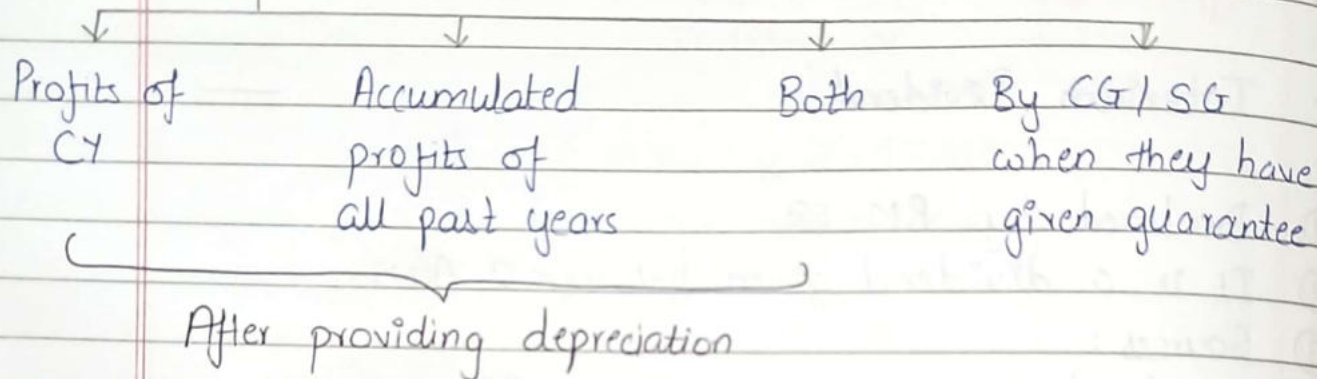 Profits of
CY
Accumulated
profits of
all past years
Both
By CG/SG
when they have
given guarantee
After providing depreciation